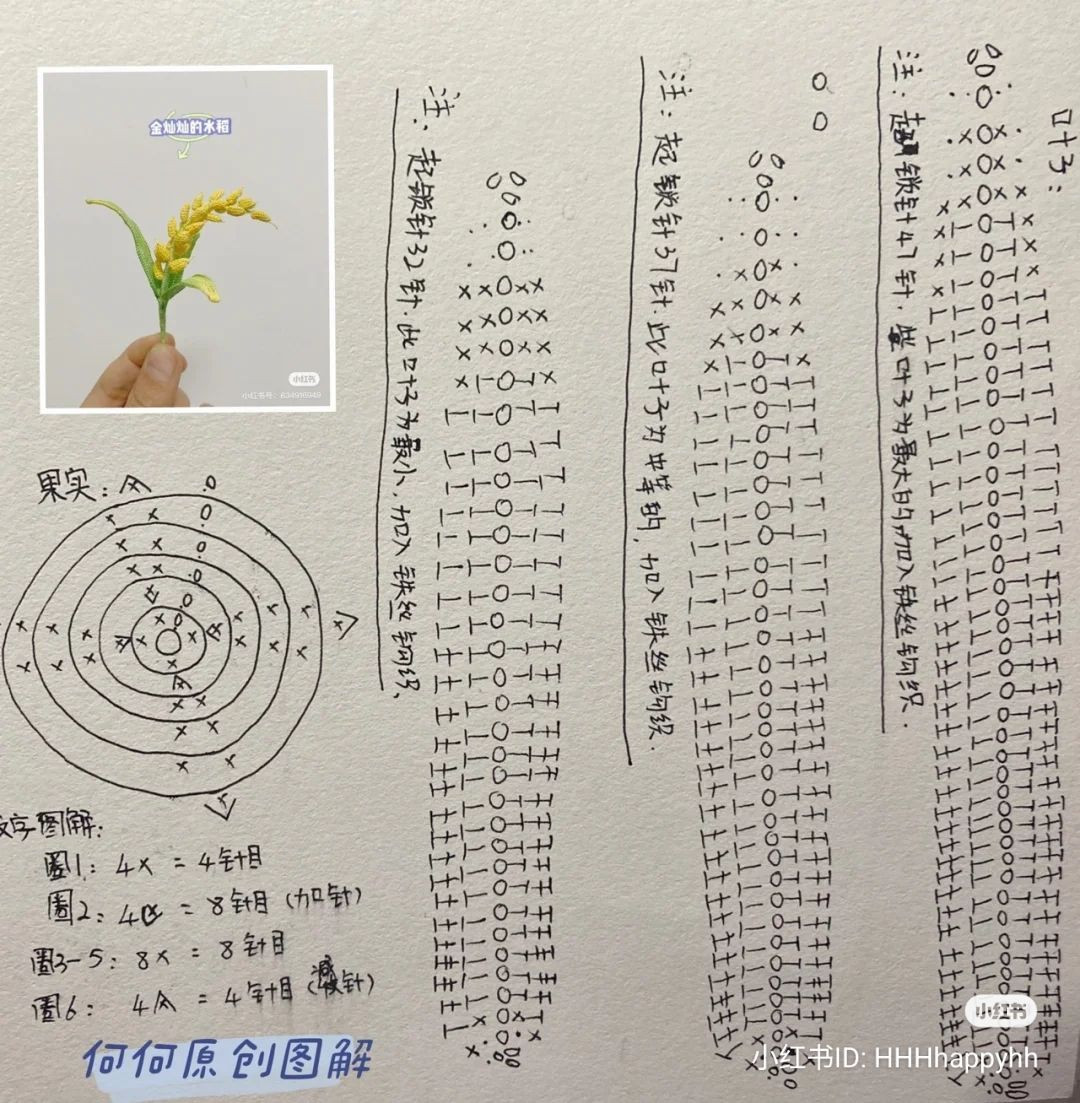 金灿灿的水稻
小红书
小红书号：634916949
果实：
文字图解：
圈1：4x = 4针目
圈2：4 = 8针目（加针）
圈3-5：8x = 8针目
圈6：4 = 4针目（减针）
何何原创图解
注：起锁针32针.此叶子为最小，加入铁丝钩织、
注：起锁针37针.此叶子为中等的，加入铁丝钩织.
叶子：
注：起锁针47针，叶子为最大的，加入铁丝钩织.
小红书
小红书ID: HHHHhappyhh